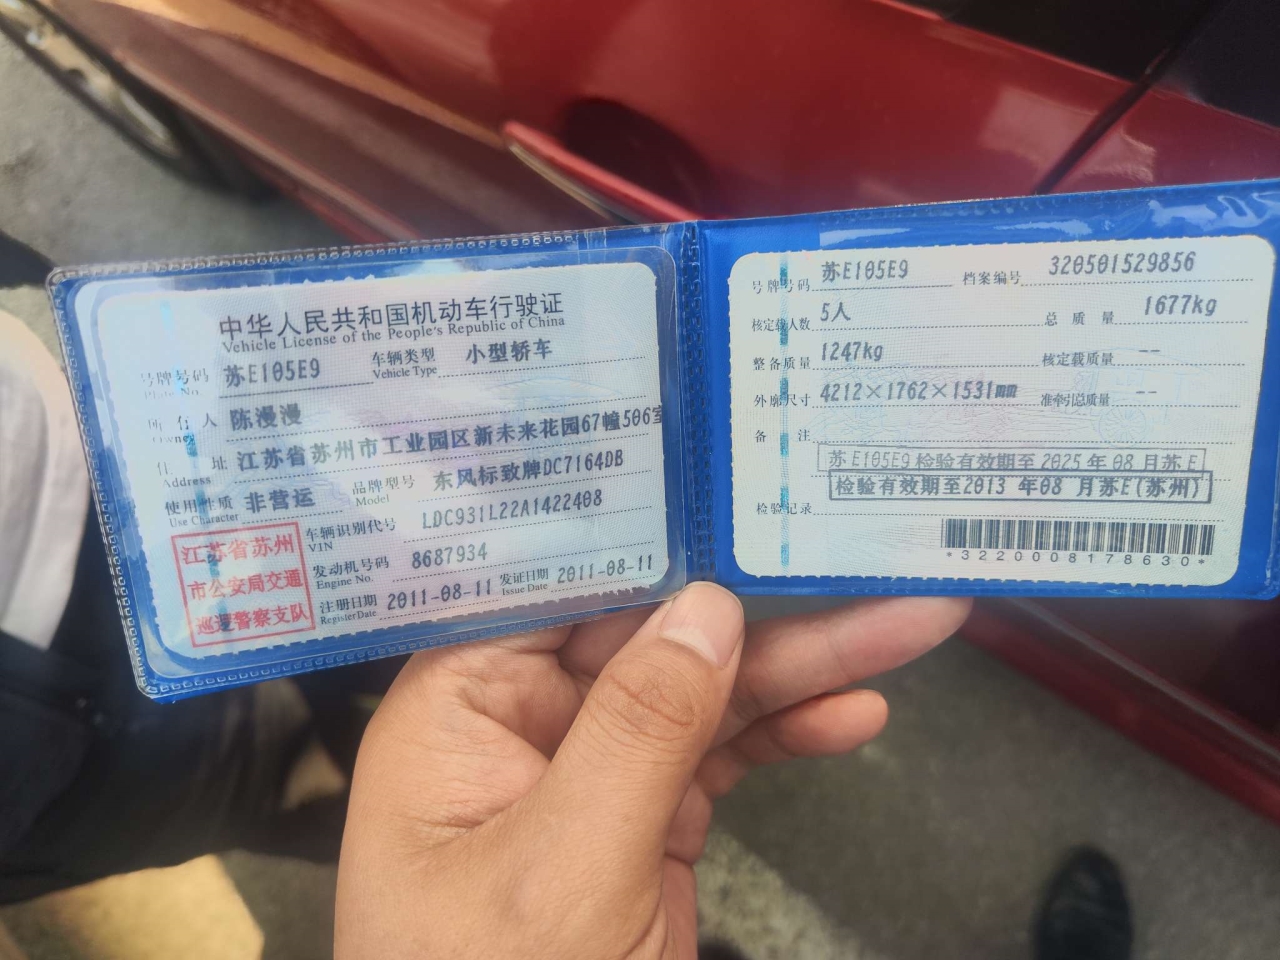 中华人民共和国机动车行驶证
Vehicle License of the People's Republic of China
号牌号码 苏E105E9 车辆类型 小型轿车
Plate No. Vehicle Type
所有人 陈漫漫
Owner
住址 江苏省苏州市工业园区新未来花园67幢506室
Address
使用性质 非营运 品牌型号 东风标致牌DC7164DB
Use Character Model
车辆识别代号 LDC931L22A1422408
VIN
发动机号码 8687934
Engine No.
注册日期 2011-08-11 发证日期 2011-08-11
Register Date Issue Date
江苏省苏州
市公安局交通
巡逻警察支队
号牌号码 苏E105E9 档案编号 320501529856
核定载人数 5人 总质量 1677kg
整备质量 1247kg 核定载质量 --
外廓尺寸 4212×1762×1531mm 准牵引总质量 --
备注
苏E105E9 检验有效期至 2025 年 08 月苏E
检验有效期至2013 年08 月苏E(苏州)
检验记录
*3220008178630*